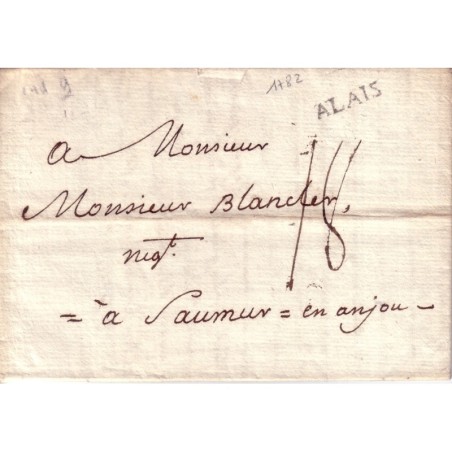 1782
ALAIS
A Monsieur
Monsieur Blancler,
negt.
18
= à Saumur = en anjou -